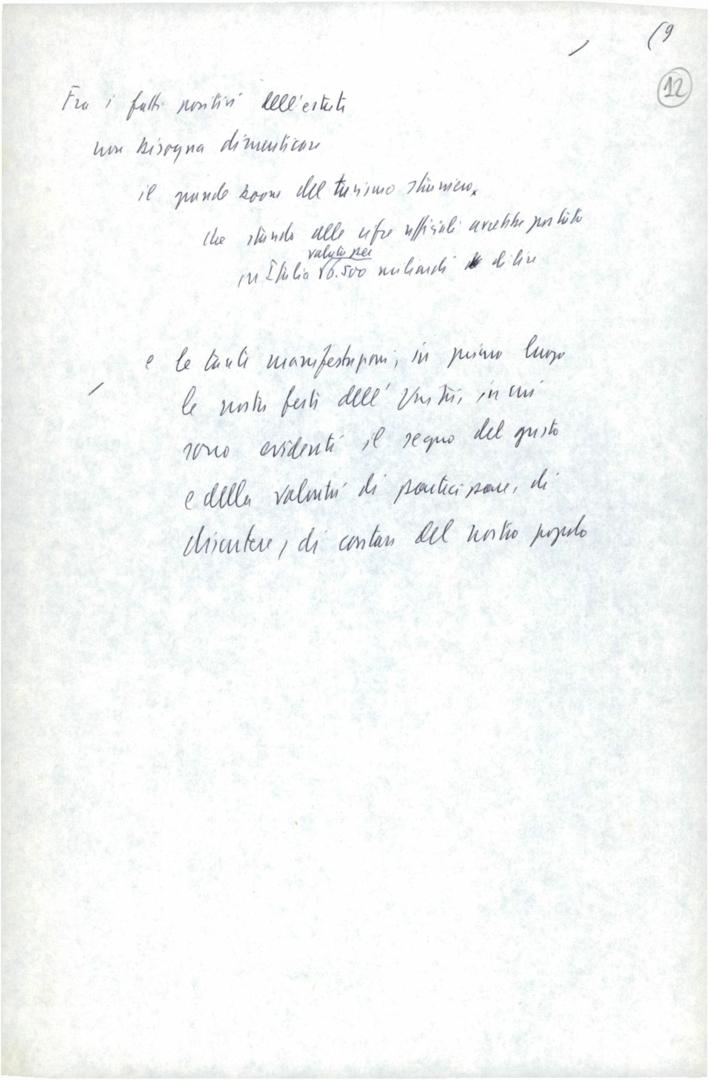 (9
12
Fra i fatti positivi dell'estate
non bisogna dimenticare
il grande boom del turismo straniero,
che stando alle cifre ufficiali avrebbe portato
valuta per
in Italia 6.500 miliardi di lire
e le tante manifestazioni, in primo luogo
le nostre feste dell'Unità, in cui
sono evidenti il segno del gusto
e della volontà di partecipare, di
discutere, di contare del nostro popolo